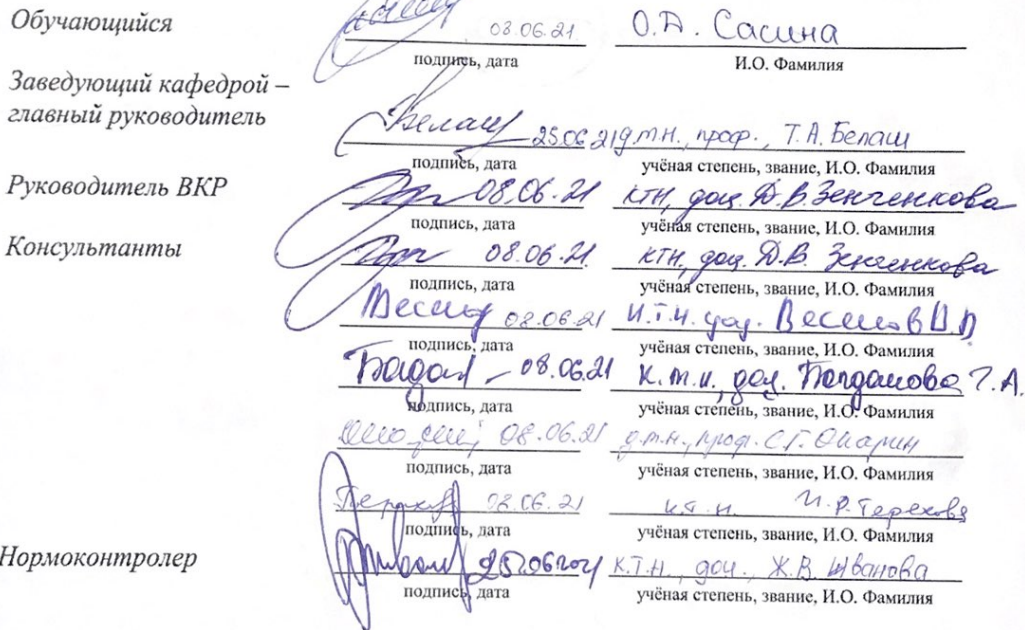 Обучающийся 08.06.21. О.А. Сасина
подпись, дата И.О. Фамилия
Заведующий кафедрой –
главный руководитель
Белаш 25.06.21 д.т.н., проф., Т.А. Белаш
подпись, дата учёная степень, звание, И.О. Фамилия
Руководитель ВКР 08.06.21 ктн, доц. Д.В. Зенченкова
подпись, дата учёная степень, звание, И.О. Фамилия
Консультанты 08.06.21 ктн, доц. Д.В. Зенченкова
подпись, дата учёная степень, звание, И.О. Фамилия
08.06.21 к.т.н. доц. Веселов
подпись, дата учёная степень, звание, И.О. Фамилия
08.06.21 к.т.н., доц. Богданова Г.А.
подпись, дата учёная степень, звание, И.О. Фамилия
08.06.21 д.т.н., проф. С.Г.
подпись, дата учёная степень, звание, И.О. Фамилия
08.06.21 к.т.н. И.Р. Терехова
подпись, дата учёная степень, звание, И.О. Фамилия
Нормоконтролер к.т.н., доц., Ж.В. Иванова
подпись, дата учёная степень, звание, И.О. Фамилия